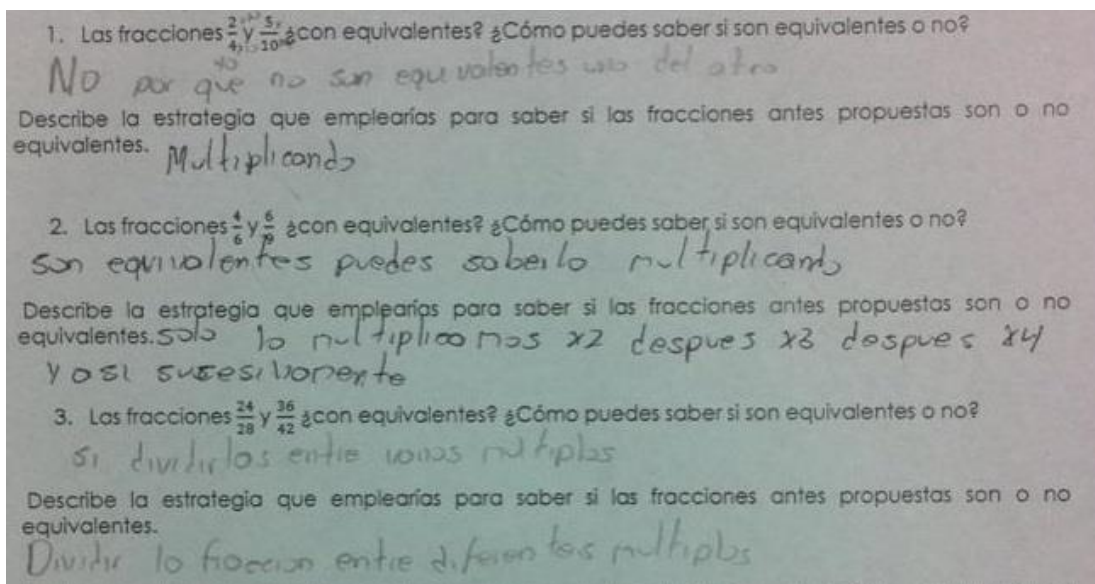 1. Las fracciones 2/4 y 5/10 ¿con equivalentes? ¿Cómo puedes saber si son equivalentes o no?
No por que no son equivalentes uno del otro
Describe la estrategia que emplearías para saber si las fracciones antes propuestas son o no
equivalentes. Multiplicando
2. Las fracciones 4/6 y 6/9 ¿con equivalentes? ¿Cómo puedes saber si son equivalentes o no?
son equivalentes puedes saberlo multiplicando
Describe la estrategia que emplearías para saber si las fracciones antes propuestas son o no
equivalentes. solo lo multiplicamos x2 despues x3 despues x4
y asi susesivamente
3. Las fracciones 24/28 y 36/42 ¿con equivalentes? ¿Cómo puedes saber si son equivalentes o no?
si dividirlos entre multiplos
Describe la estrategia que emplearías para saber si las fracciones antes propuestas son o no
equivalentes.
Dividir la fraccion entre diferentes multiplos